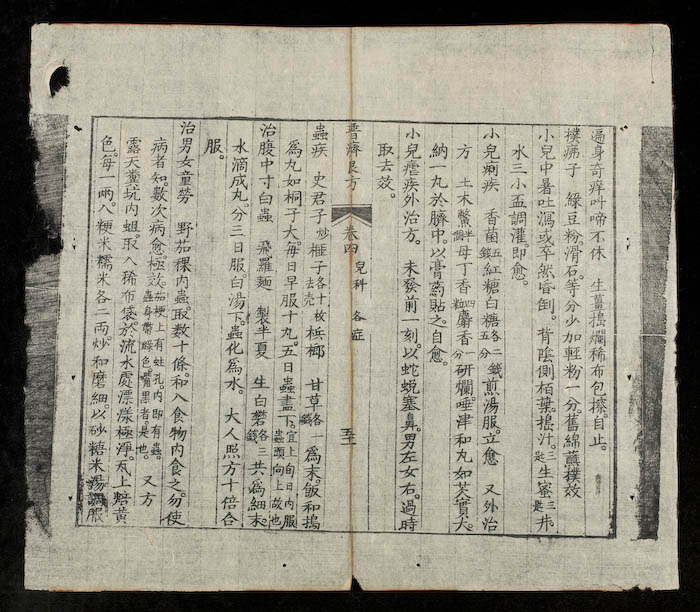 遍身奇痒叫啼不休　生薑搗爛稀布包擦。自止。
撲痱子　綠豆粉。滑石。等分少加輕粉一分。舊綿蘸撲效
小兒中暑吐瀉或卒然昏倒。背陰側柏葉。搗汁。三匙生蜜三匙井
水三小盃調灌。即愈。
小兒痢疾　香菌五錢紅糖白糖各二錢五分煎湯服。立愈　又外治
方　土木鱉半個母丁香四粒麝香一分研爛。唾津和丸如芡實大。
納一丸於臍中。以膏藥貼之。自愈。
小兒瘧疾外治方。　未發前一刻。以蛇蛻塞鼻。男左女右。過時
取去效。
普濟良方　卷四　兒科　各症　五十
蟲疾　史君子炒榧子去壳各十枚梹榔　甘草各一錢為末。飯和搗
為丸如桐子大。每日早服十丸。五日蟲盡下。宜上旬日內服蟲頭向上故也
治腹中寸白蟲　飛羅麵　製半夏　生白礬各三錢共為細末。
水滴成丸。分三日服。白湯下。蟲化為水。　大人照方十倍合
服。
治男女童勞　野茄稞內蟲。取數十條。和入食物內食之。勿使
病者知。數次病愈。極效。茄梗上有蛀孔。內即有蟲。蟲身帶綠色嘴黑者是也。　又方
露天糞坑內蛆。取入稀布袋。於流水處漂漾極淨。瓦上焙黃
色。每一兩。入粳米糯米各二両。炒。和磨細。以砂糖米湯調服